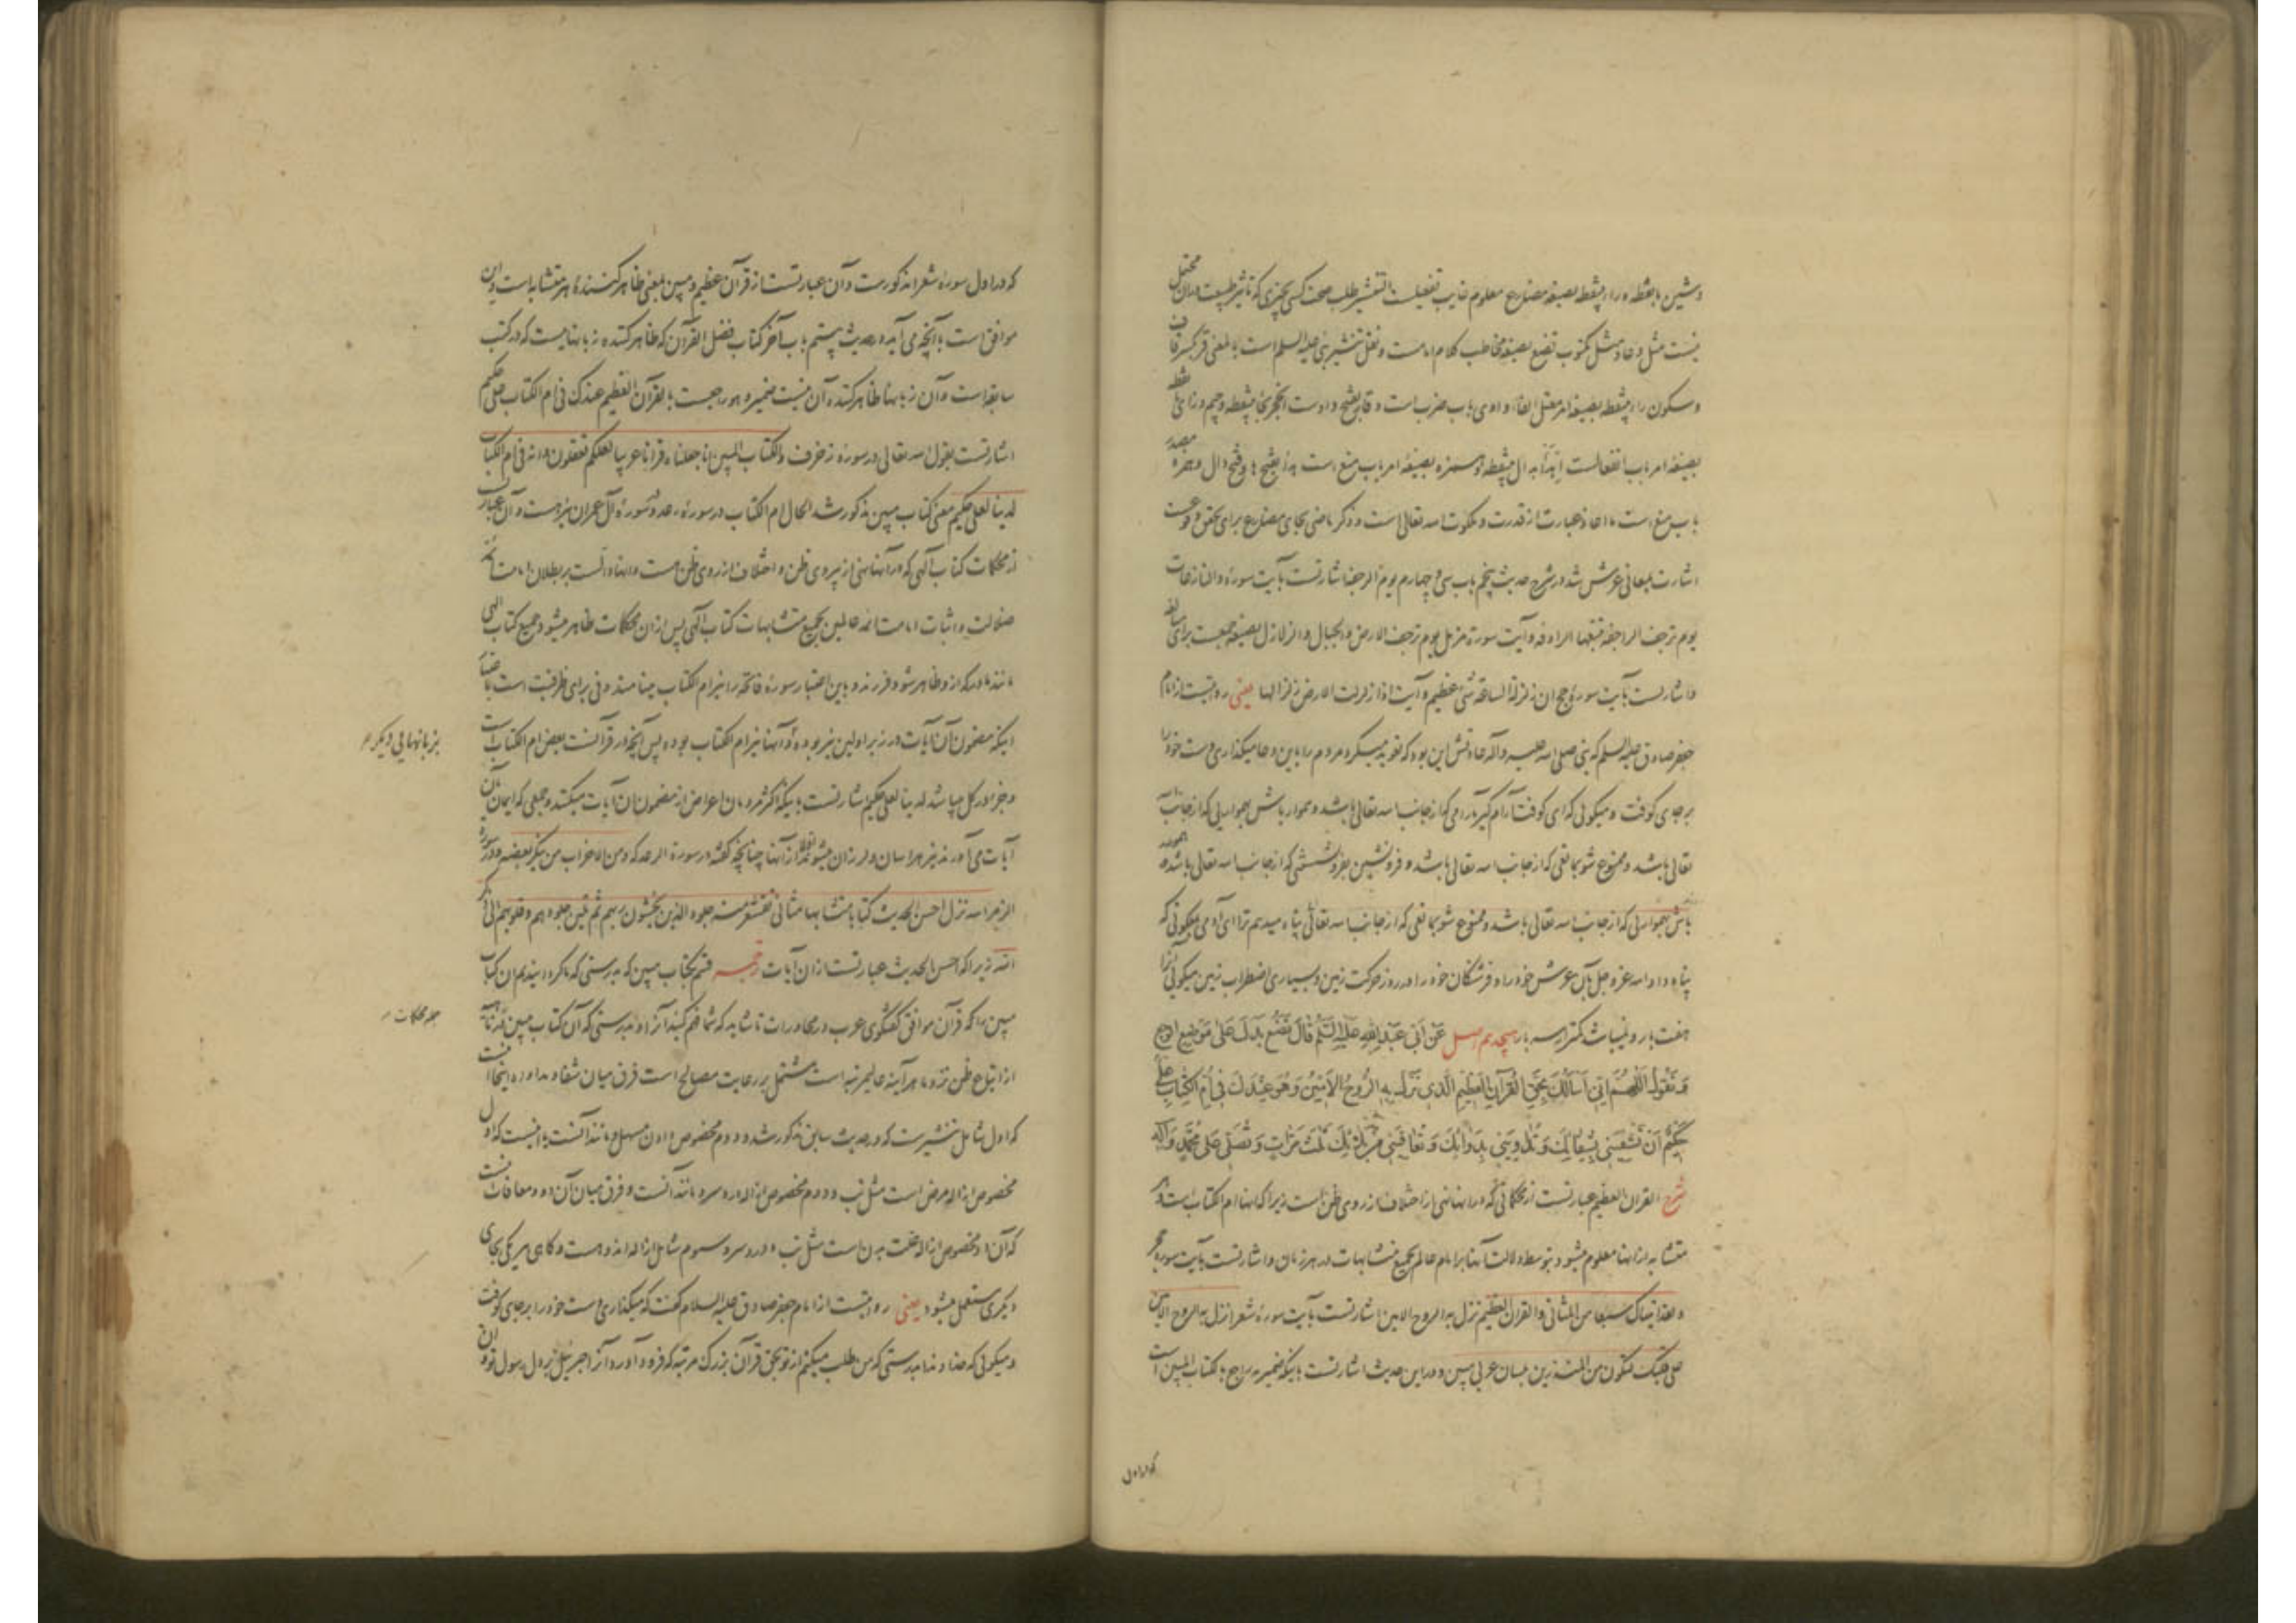 وشین بانقطه و راء بینقطه بصیغه مضارع معلوم غایب تفعیلست التنشیر طلب صحت کسی بچیزی که تاثیر طبیعت دران محتمل
نیست مثل دعا و مثل مکتوب تضع بصیغه مخاطب کلام امامست و نقل تنشیر نبی علیه السلم است بالمعنی قر بکسر قاف
وسکون راء بینقطه بصیغه امر معتل الفاء واوی باب ضرب است وقار بفتح واوست
بصیغه امر باب انفعالست ابدأ بدال بینقطه وهمزه بصیغه امر باب منع است بفتح ها وفتح دال وهمزه مصدر
باب منع است ما اعاذ عبارت از قدرت و ملکوت الله تعالی است و ذکر ماضی بجای مضارع برای تحقق وقوعست
اشارت بمعانی عرش شد در شرح حدیث پنجم باب سی و چهارم یوم الرجفه اشارتست بآیت سورهٔ والنازعات
یوم ترجف الراجفة تتبعها الرادفة وآیت سورة مزمل یوم ترجف الارض والجبال والزلازل بصیغه جمعست برای مبالغه
واشارتست بآیت سورهٔ حج ان زلزلة الساعة شیء عظیم وآیت اذا زلزلت الارض زلزالها یعنی روایتست از امام
جعفر صادق علیه السلم که نبی صلی الله علیه وآله عادتش این بود که تعویذ میکرد مردم را باین دعا میگذاری دست خود را
برجای کوفت و میگوئی که ای کوفت آرام گیر بآرامی که از جانب الله تعالی باشد و هموار باش بهمواریی که از جانب الله
تعالی باشد و ممنوع شو بمانعی که از جانب الله تعالی باشد و فرونشین بفرونشستنی که از جانب الله تعالی باشد و هموار
باش بهمواریی که از جانب الله تعالی باشد و ممنوع شو بمانعی که از جانب الله تعالی پناه میدهم ترا ای آدمی بملکوتی که
پناه داد الله عزوجل بآن عرش خود را و فرشتگان خود را در روز حرکت زمین و بسیاری اضطراب زمین میگوئی آنرا
هفت بار و نمیباشد کمتر از سه بار هیجدهم اصل عَن اَبی عَبدِاللهِ عَلَیهِ السَّلم قالَ تَضَعُ یَدَكَ عَلی مَوضِعِ الوجع
وَ تَقولُ اللّهُمَّ اِنّی اَسأَلُكَ بِحَقِّ القُرآنِ العَظیمِ الَّذی نَزَلَ بِهِ الرُّوحُ الاَمینُ وَهُوَ عِندَكَ فی اُمِّ الکِتابِ عَلیٌّ
حَکیمٌ اَن تَشفِیَنی بِشِفائِكَ وَ تُداوِیَنی بِدَوائِكَ وَ تُعافِیَنی مِن بَلائِكَ ثَلثَ مَرّاتٍ وَ تُصَلّی عَلی مُحَمَّدٍ وَآلِه
شرح القران العظیم عبارتست از محکماتی که در آنها نهی از اختلاف از روی ظن است زیرا که آنها ام الکتاب است و هر
متشابه از آنها معلوم میشود بتوسط دلالت آنها برامام عالم بجمیع متشابهات در هر زمان و اشارتست بآیت سوره حجر
ولقد آتیناك سبعا من المثانی والقران العظیم نزل به الروح الامین اشارتست بآیت سورهٔ شعرا نزل به الروح الامین
علی قلبك لتکون من المنذرین بلسان عربی مبین و در این حدیث اشارتست باینکه ضمیر به راجع بکتاب المبین است
که در اول
که در اول سوره شعرا مذکورست و آن عبارتست از قرآن عظیم و مبین بمعنی ظاهر کنندهٔ هر متشابه است و این
موافق است بآنچه می آید در حدیث بیستم باب آخر کتاب فضل القرآن که ظاهر کننده زبانهاست که در کتب
سابقه است و آن زبانها ظاهر کننده آن نیست ضمیر وهو راجعست بالقرآن العظیم عندك فی ام الکتاب علی حکیم
اشارتست بقول الله تعالی در سورهٔ زخرف والکتاب المبین انا جعلناه قرانا عربیا لعلکم تعقلون وانه فی ام الکتاب
لدینا لعلی حکیم معنی کتاب مبین مذکور شد الحال ام الکتاب در سورهٔ رعد و سورهٔ آل عمران نیز هست و آن عبارتست
از محکمات کتاب آلهی که در آنها نهی از پیروی ظن و اختلاف از روی ظن هست و آنها دالست بر بطلان امامت ائمه
ضلالت و اثبات امامت ائمه عالمین بجمیع متشابهات کتاب آلهی پس از آن محکمات ظاهر میشود جمیع کتاب الهی
مانند مادر که از و ظاهر شود فرزند و باین اعتبار سورهٔ فاتحه را نیز ام الکتاب مینامند و فی برای ظرفیت است باعتبار
اینکه مضمون آن آیات در زبر اولین نیز بوده و آنها نیز ام الکتاب بوده پس آنچه در قرآنست بعض ام الکتاب است
بزبانهای دیگر م
وجز در کل میباشد لدینا لعلی حکیم اشارتست باینکه اکثر مردمان اعراض از مضمون آن آیات میکنند و جمعی که ایمان بآن
آیات می آورند نیز هراسان و لرزان میشوند از آنها چنانچه گفته در سورة الرعد که ومن الاحزاب من ینکر بعضه و در سورهٔ
الزمر الله نزل احسن الحدیث کتابا متشابها مثانی تقشعر منه جلود الذین یخشون ربهم ثم تلین جلودهم وقلوبهم الی ذکر
الله زیرا که احسن الحدیث عبارتست از آن آیات ترجمه قسم بکتاب مبین که بدرستی که ما گردانیدیم آن کتاب
مبین را که قرآن موافق گفتگوی عرب در محاورات تا شاید که شما فهم کنید آنرا و بدرستی که آن کتاب مبین
جمله محکمات م
از اتباع ظن نزد ما هر آینه عالیمرتبه است مشتمل بر رعایت مصالح است فرق میان شفا و مداوا در اینجا آنست
که اول شامل تنشیرست که در حدیث سابق مذکور شد و دوم مخصوص دادن مسهل و مانند آنست یا اینست که اول
مخصوص ازاله مرض است مثل تب و دوم مخصوص ازاله درد سر و مانند آنست و فرق میان آن دو و معافات آنست
که آن دو مخصوص ازاله علت بدن است مثل تب و درد سر و سوم شامل ازاله اندوهست و گاهی هر یکی بجای
دیگری مستعمل میشود یعنی روایتست از امام جعفر صادق علیه السلام گفت که میگذاری دست خود را برجای کوفت
و میگوئی که خداوندا بدرستی که من طلب میکنم از تو بحق قرآن بزرگ مرتبه که فرود آورد آنرا جبرئیل بر دل رسول تو و آن